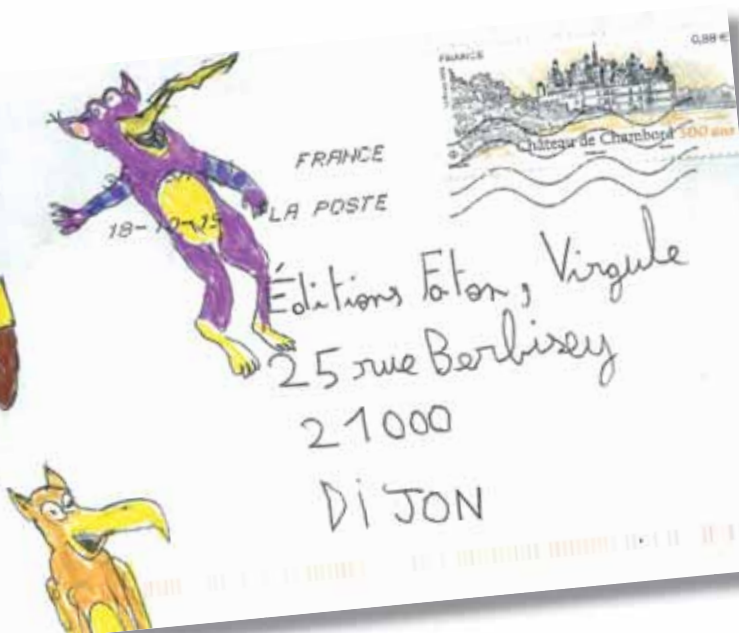 FRANCE
0,88 €
Château de Chambord 500 ans
FRANCE
LA POSTE
18-10-19
Éditions Faton, Virgule
25 rue Berbisey
21000
DiJON